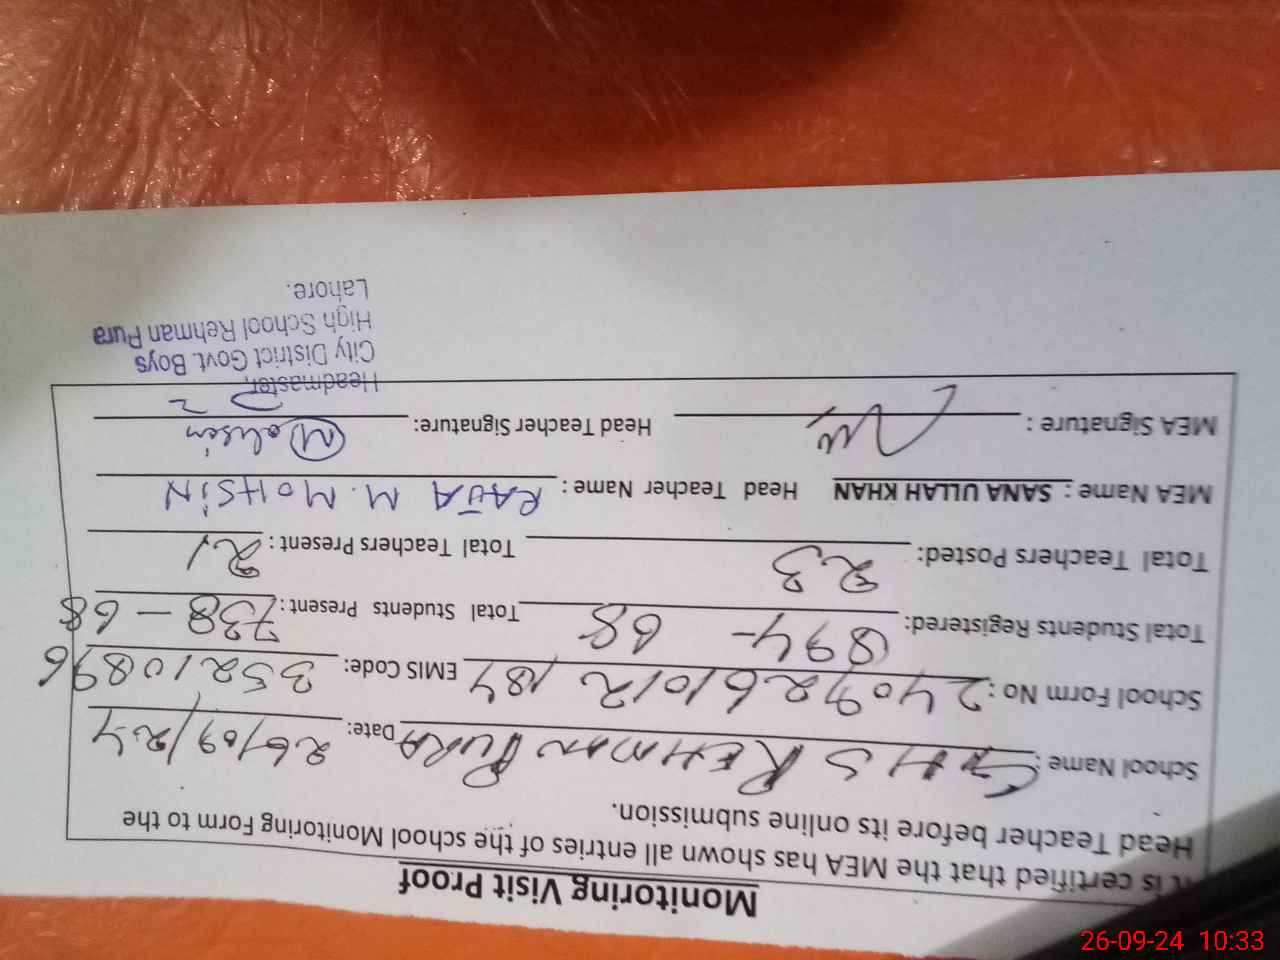 Monitoring Visit Proof
It is certified that the MEA has shown all entries of the school Monitoring Form to the
Head Teacher before its online submission.
School Name : GHS REHMAN PURA Date: 26/09/24
School Form No : 2409261012184 EMIS Code: 35210896
Total Students Registered: 894 - 68 Total Students Present : 738 - 68
Total Teachers Posted: 23 Total Teachers Present : 21
MEA Name : SANA ULLAH KHAN Head Teacher Name : RAJA M. MOHSiN
MEA Signature : Head Teacher Signature: Mohsin
Headmaster,
City District Govt. Boys
High School Rehman Pura
Lahore.
26-09-24 10:33